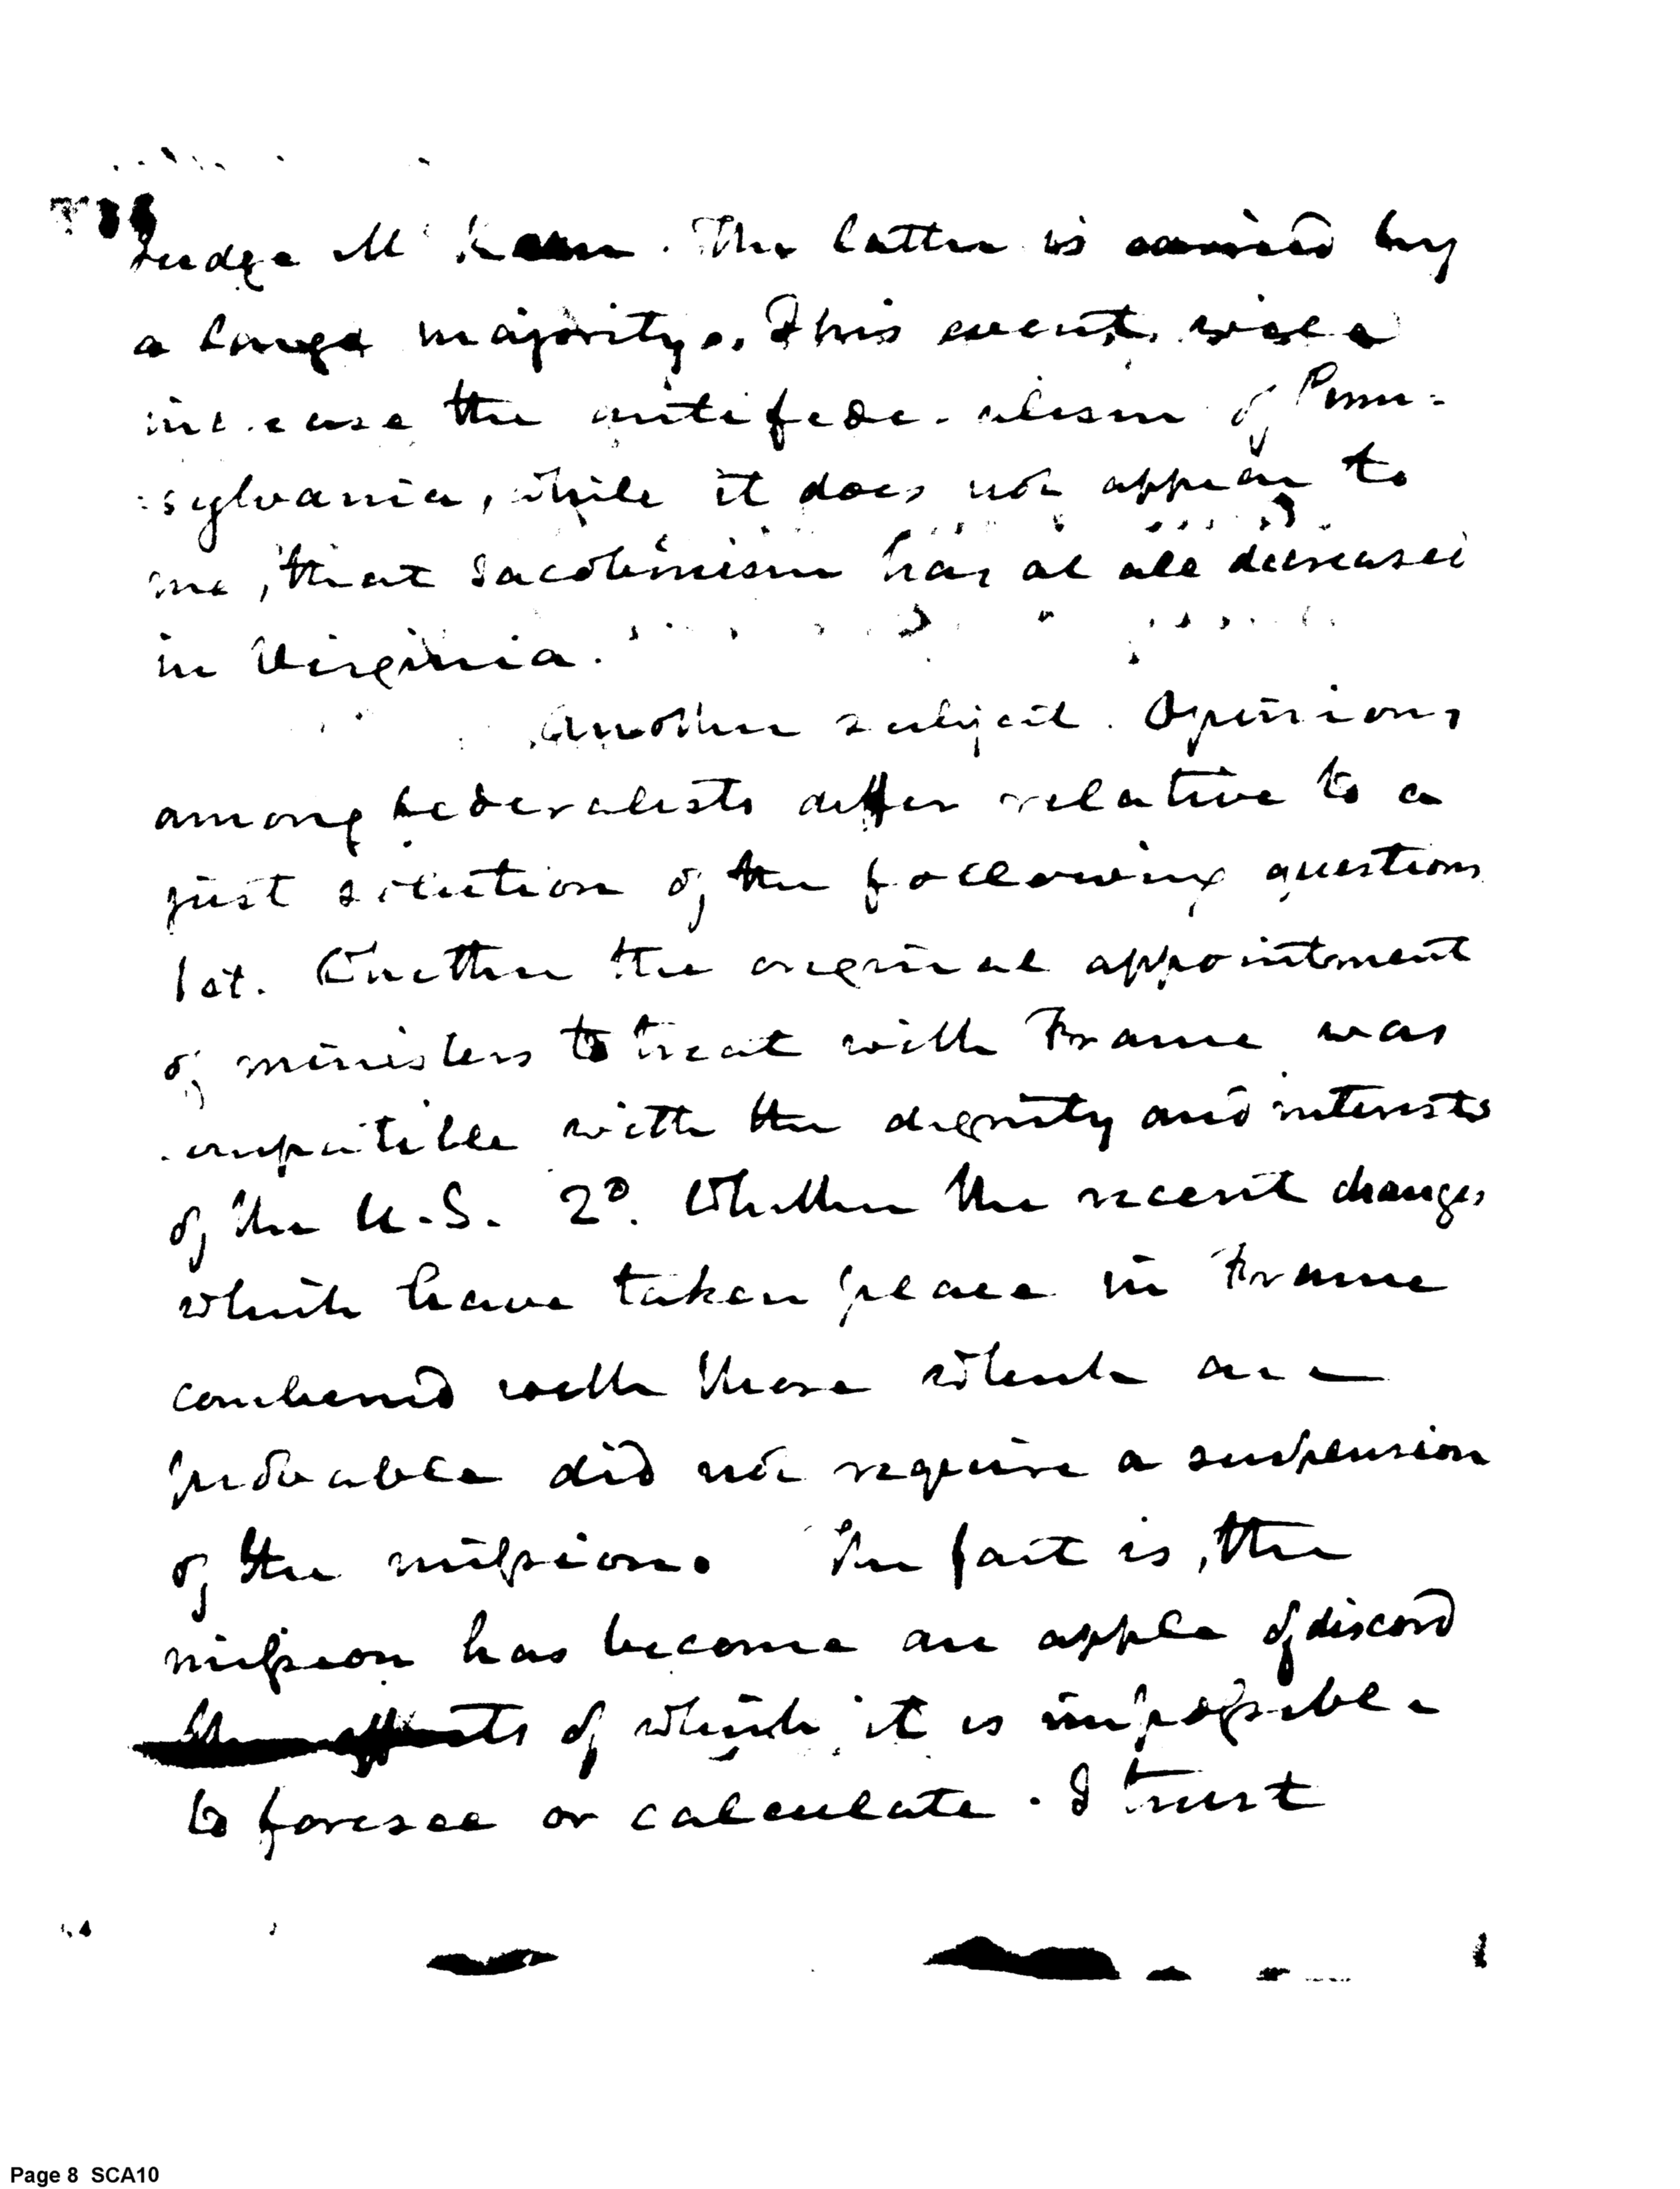 Judge McKean. The latter is carried by
a large majority. This event will
increase the antifederalism of Penn=
=sylvania, while it does not appear to
me, that Jacobinism has at all decreased
in Virginia.
Another subject. Opinions
among Federalists differ relative to a
just solution of the following questions
1st. Whether the original appointment
of ministers to treat with France was
compatible with the dignity and interests
of the U.S. 2d. Whether the recent changes
which have taken place in France
combined with those which are
probable did not require a suspension
of the mission. The fact is, the
mission has become an apple of discord
the effects of which it is impossible
to foresee or calculate. I trust
Page 8 SCA10